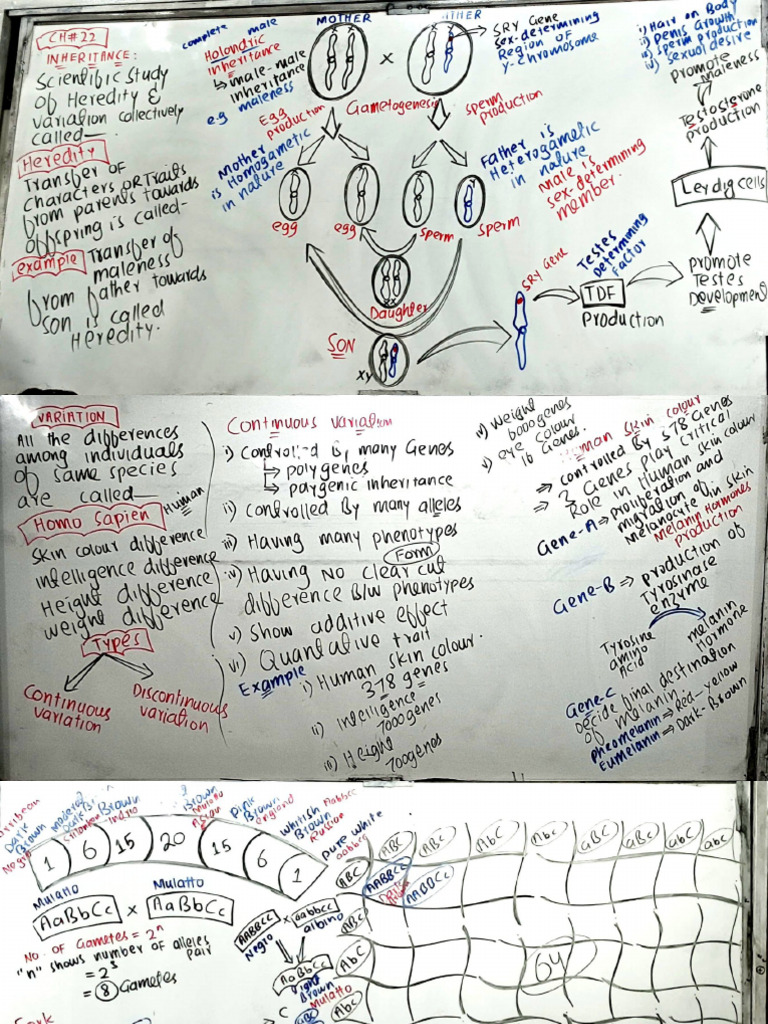 CH#22
INHERITANCE:
Scientific Study
of Heredity &
variation collectively
called—
Heredity
Transfer of
characters OR Traits
from parents towards
offspring is called-
example
Transfer of
maleness
from father towards
son is called
Heredity.
complete male
Holandric
inheritance
male-male
inheritance
e.g maleness
MOTHER
X
SRY Gene
sex-determining
Region of
Y-chromosome
Egg
production
Gametogenesis
sperm
production
Mother
is Homogametic
in nature
Father is
Heterogametic
in nature
Male is
sex-determining
member.
egg
egg
sperm
sperm
Daughter
SON
Xy
SRY Gene
Testes
Determining
Factor
TDF
Production
PROMOTE
Testes
Development
Leydig cells
Testosterone
production
Promote
maleness
i) Hair on Body
ii) Penis Growth
iii) sperm production
iv) sexual desire
VARIATION
All the differences
among individuals
of same species
are called—
Homo Sapien
Human
Skin colour difference
intelligence difference
Height difference
weight difference
Types
Continuous
variation
Discontinuous
variation
Continuous variation
i) Controlled By many Genes
polygenes
polygenic inheritance
ii) Controlled By many alleles
iii) Having many phenotypes
Form
iv) Having No clear cut
difference B/w phenotypes
v) Show additive effect
vi) Quantative trait
Example
i) Human skin colour.
378 genes
ii) intelligence
7000genes
iii) Height
700genes
iv) Weight
6000genes
v) eye colour
16 Genes.
Human Skin colour
controlled By 378 Genes
3 Genes play critical
Role in Human skin colour
Gene-A proliferation and
migration of
Melanocyte in skin
Melanin Hormones
production
Gene-B production of
Tyrosinase
enzyme
Tyrosine
amino
Acid
melanin
Hormone
Gene-C
Decide final destination
of melanin.
pheomelanin Red-yellow
Eumelanin Dark-Brown
Dark
Brown
Negro
Brown
Brown
Mulatto
Asian
Pink
Brown
england
whitish Aabbcc
Brown
Russian
pure white
aabbcc
1 6 15 20 15 6 1
Mulatto
AaBbCc
X
Mulatto
AaBbCc
No of Gametes = 2ⁿ
"n" shows number of alleles
pair
= 2³
= 8 Gametes
AABBCC
Negro
X
aabbcc
albino
AaBbCc
Brown
Mulatto
ABC ABc AbC Abc aBC aBc abC abc
ABC
AABBCC
AABBCc
ABc
AbC
Abc
64